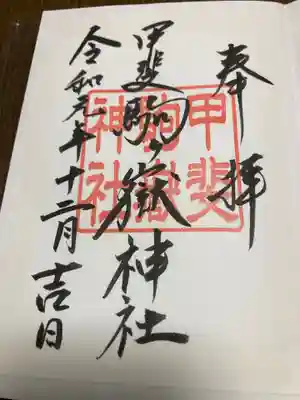 奉拝
甲斐駒ヶ嶽神社
甲斐駒嶽神社
令和元年十二月吉日